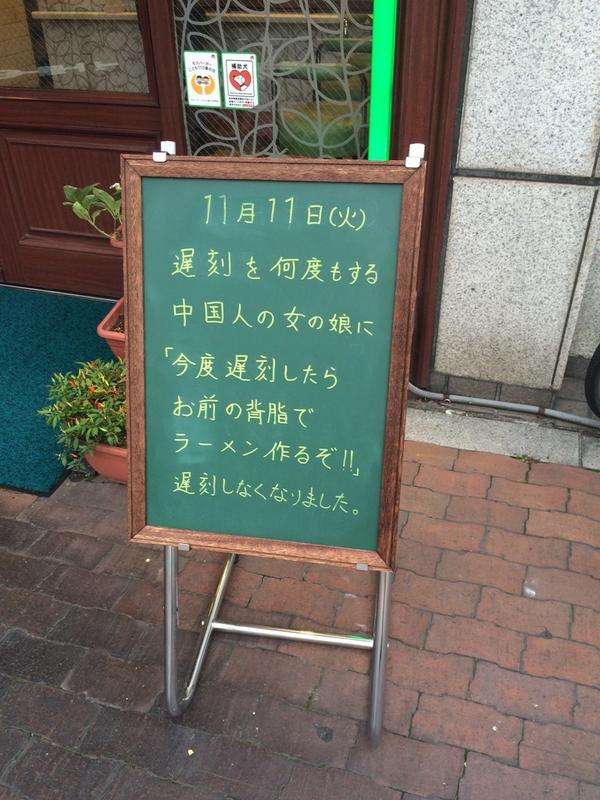 11月11日(火)
遅刻を何度もする
中国人の女の娘に
「今度遅刻したら
お前の背脂で
ラーメン作るぞ!!」
遅刻しなくなりました。
補助犬